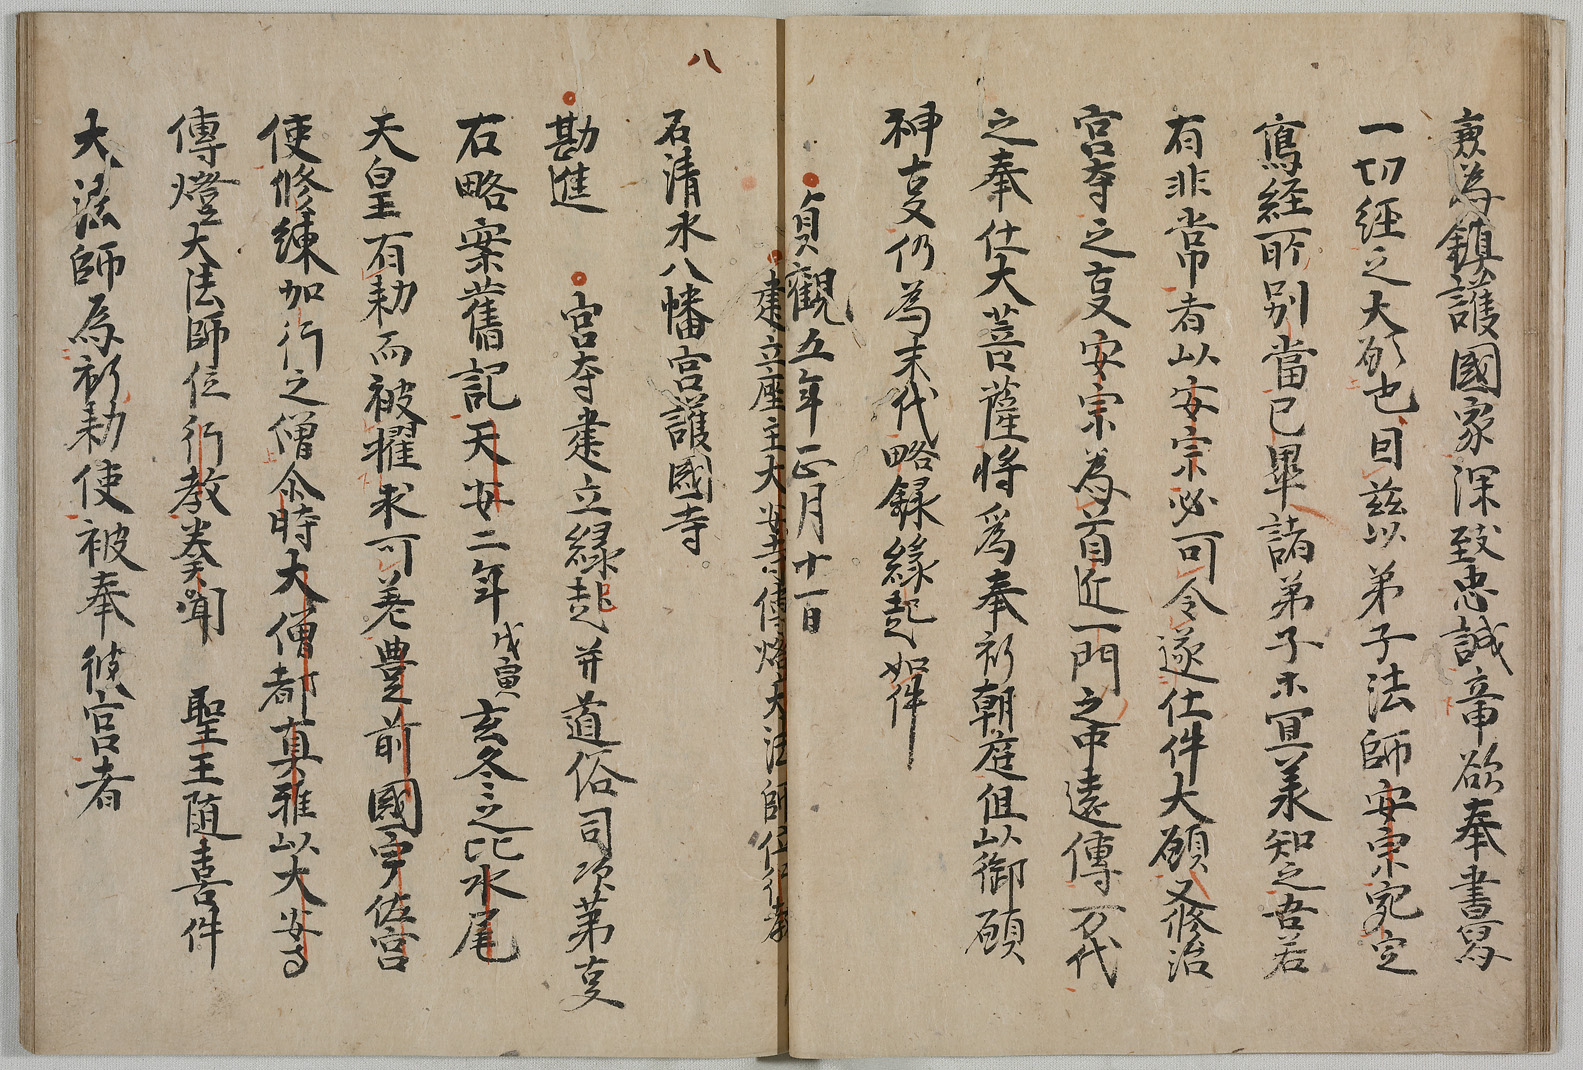 兼為鎮護國家深致忠誠帝欲奉書寫
一切經之大願也因茲以弟子法師安宗宛定
寫経所別當已畢諸弟子等冥義知之吾若
有非常者以安宗必可令遂仕件大願又修治
宮寺之事安宗為首近一門之中遠傳万代
之奉仕大菩薩将為奉祈朝庭但以御願
神事仍為末代略録緣起如件
貞觀五年正月十一日
建立座主大安寺傳燈大法師位行教
八
石清水八幡宮護國寺
勘進 宮寺建立緣起并道俗司次第事
右略案舊記天安二年戊寅玄冬之比水尾
天皇有勅而被擢求可差豊前國宇佐宮
使修練加行之僧尒時大僧都真雅以大安寺
傳燈大法師位行教奏聞 聖王随喜件
大法師為祈勅使被奉彼宮者